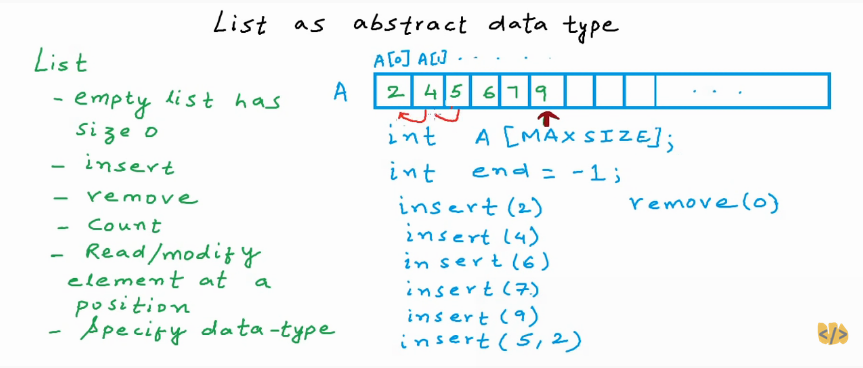 List as abstract data type
List
- empty list has
size 0
- insert
- remove
- Count
- Read/modify
element at a
position
- Specify data-type
A[0] A[1] . . . . .
A 2 4 5 6 7 9 . . .
int A[MAXSIZE];
int end = -1;
insert(2) remove(0)
insert(4)
insert(6)
insert(7)
insert(9)
insert(5,2)
</>